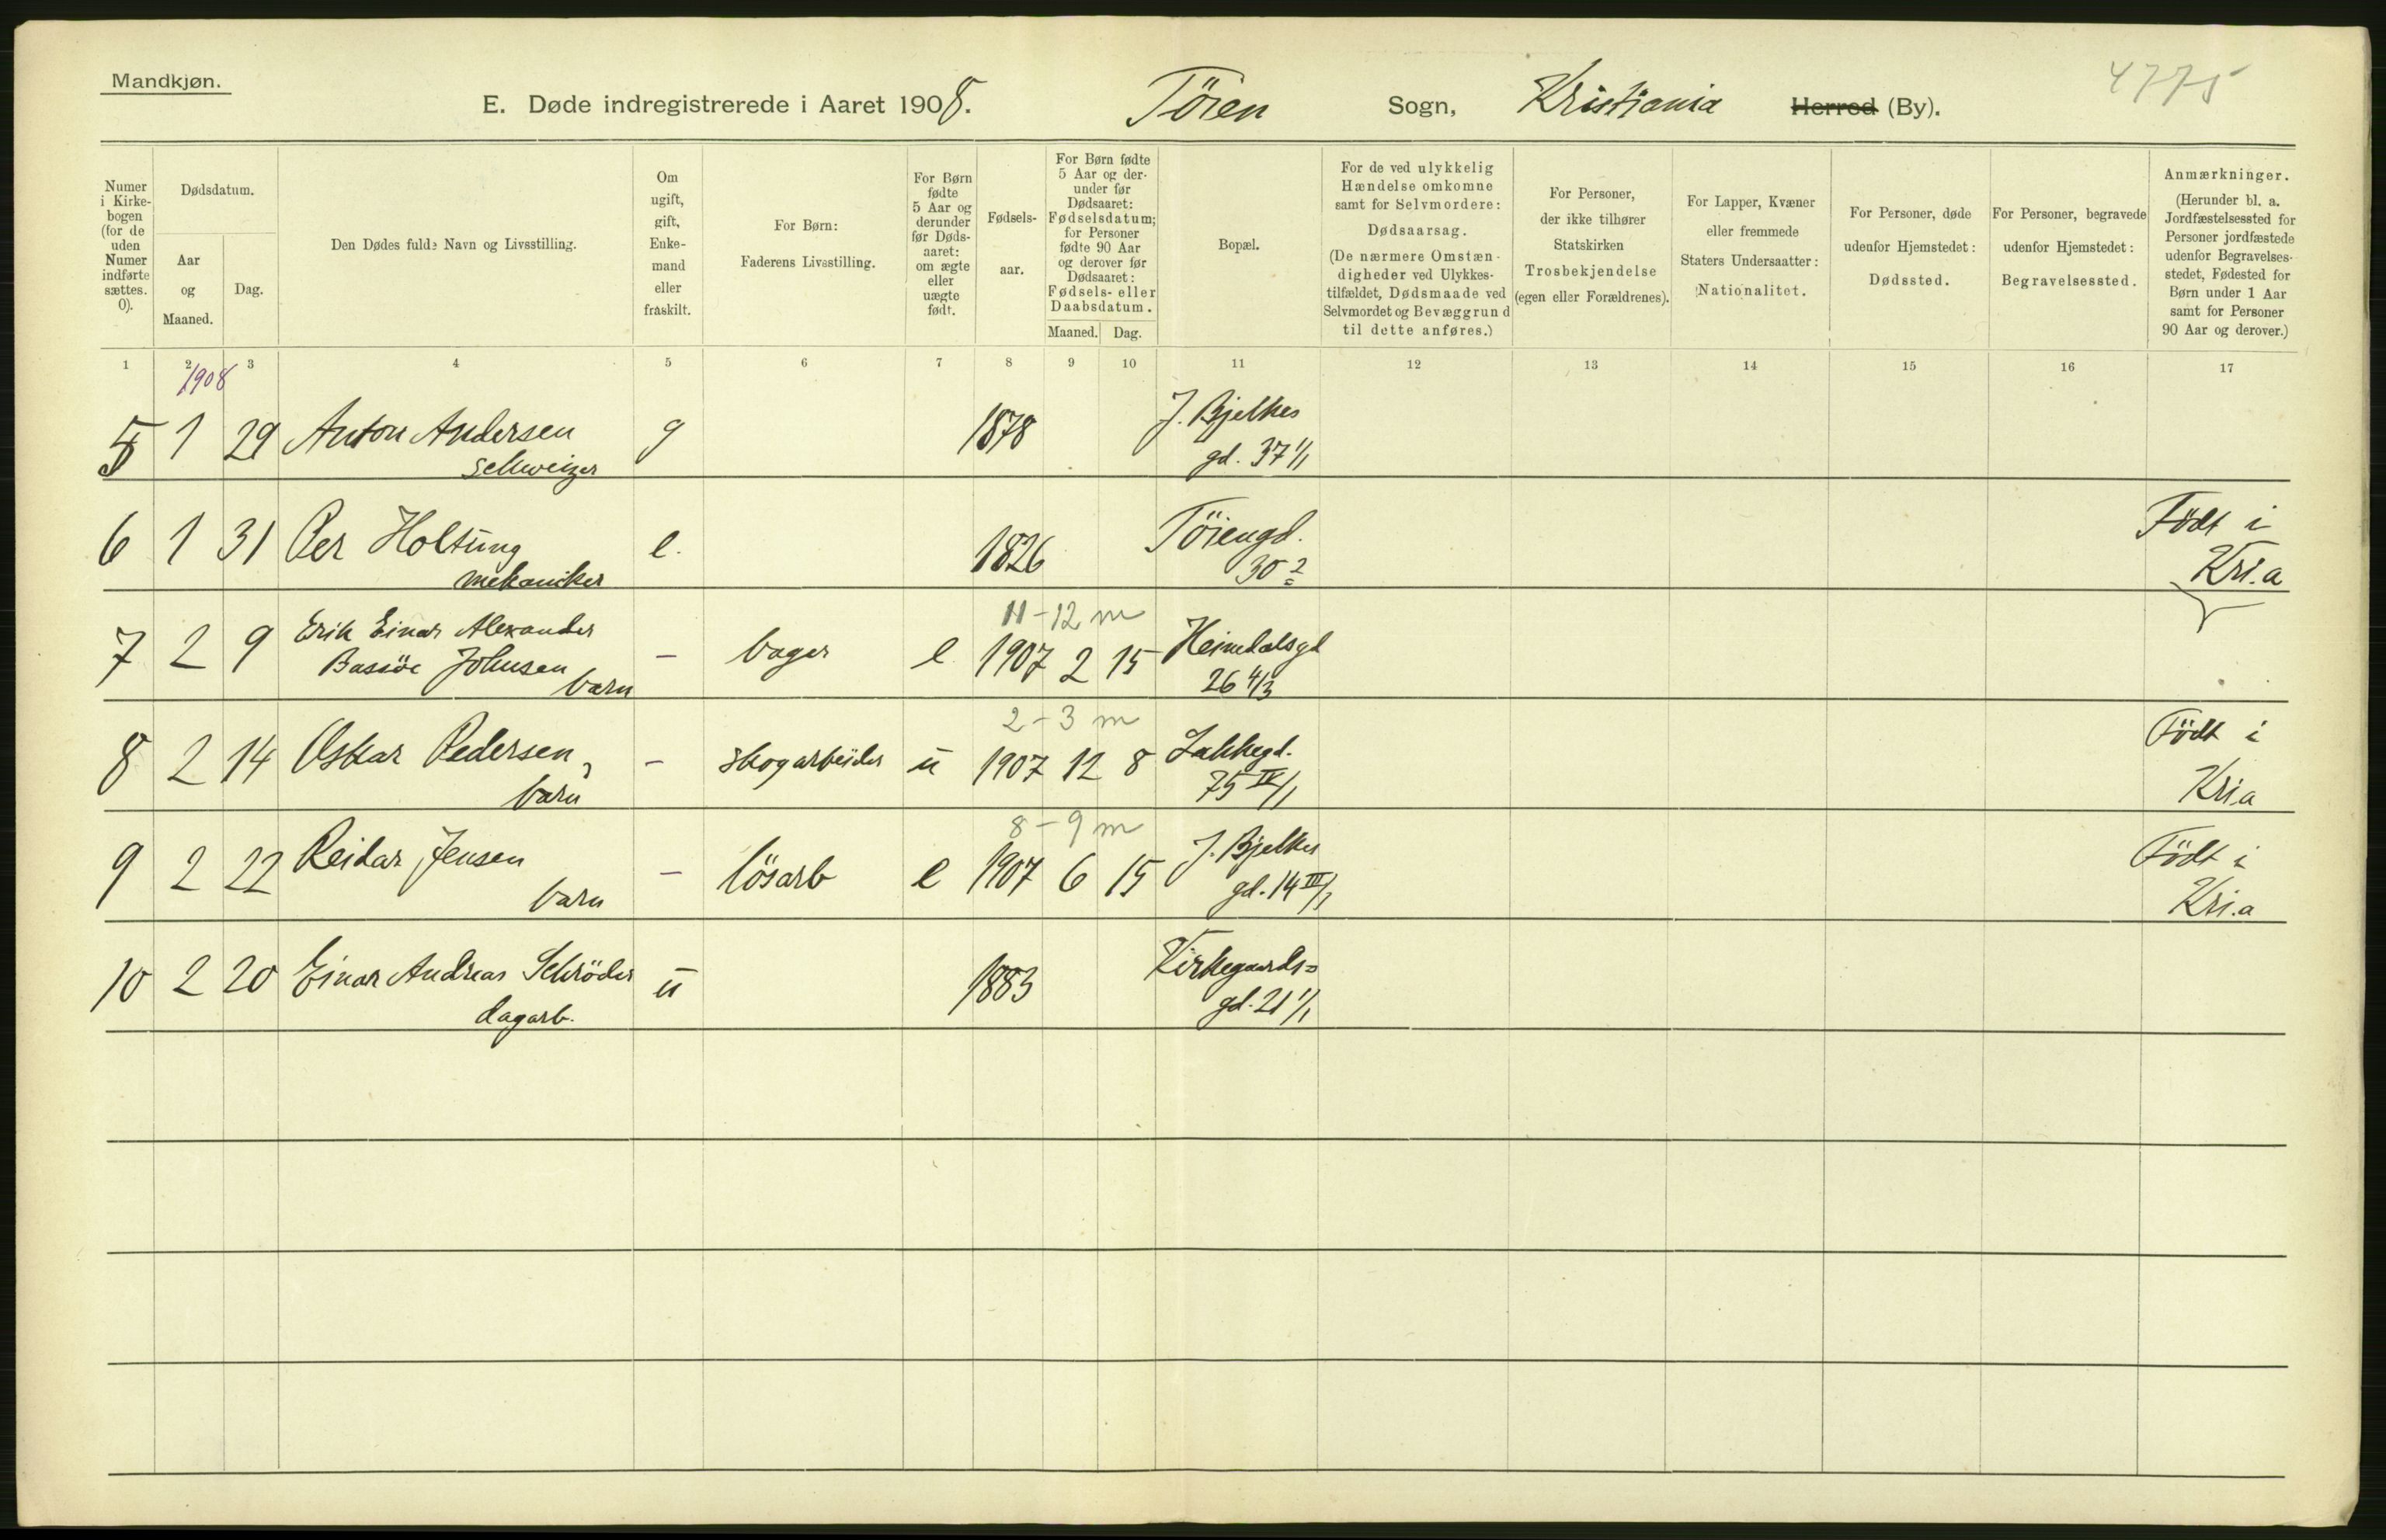 Mandkjøn.
E. Døde indregistrerede i Aaret 1908. Töien Sogn, Kristiania Herred (By).
4775
Numer
i Kirke-
bogen
(for de
uden
Numer
indførte
sættes.
0).
Dødsdatum.
Aar
og
Maaned.
Dag.
Den Dødes fulde Navn og Livsstilling.
Om
ugift,
gift,
Enke-
mand
eller
fraskilt.
For Børn:
Faderens Livsstilling.
For Børn
fødte
5 Aar og
derunder
før Døds-
aaret:
om ægte
eller
uægte
født.
Fødsels-
aar.
For Børn fødte
5 Aar og der-
under før
Dødsaaret:
Fødselsdatum;
for Personer
fødte 90 Aar
og derover før
Dødsaaret:
Fødsels- eller
Daabsdatum.
Maaned. Dag.
Bopæl.
For de ved ulykkelig
Hændelse omkomne
samt for Selvmordere:
Dødsaarsag.
(De nærmere Omstæn-
digheder ved Ulykkes-
tilfældet, Dødsmaade ved
Selvmordet og Bevæggrund
til dette anføres.)
For Personer,
der ikke tilhører
Statskirken
Trosbekjendelse
(egen eller Forældrenes).
For Lapper, Kvæner
eller fremmede
Staters Undersaatter:
Nationalitet.
For Personer, døde
udenfor Hjemstedet:
Dødssted.
For Personer, begravede
udenfor Hjemstedet:
Begravelsessted.
Anmærkninger.
(Herunder bl. a.
Jordfæstelsessted for
Personer jordfæstede
udenfor Begravelses-
stedet, Fødested for
Børn under 1 Aar
samt for Personer
90 Aar og derover.)
1 2 3 4 5 6 7 8 9 10 11 12 13 14 15 16 17
1908
5 1 29 Anton Andersen g 1878 J. Bjelkes
schweizer gd. 37 1/1
6 1 31 Per Holtung e. 1826 Töiengd. Födt i
mekaniker 30 2 Kri.a
11-12 m
7 2 9 Erik Einar Alexander
Bassöe Johnsen - bager e 1907 2 15 Heimdalsgd
barn 26 4/3
2-3 m
8 2 14 Oskar Pedersen, - skogarbeider u 1907 12 8 Lakkegd. Födt i
barn 75 IV/1 Kria
8-9 m
9 2 22 Reidar Jensen - lösarb e 1907 6 15 J. Bjelkes Födt i
barn gd. 14 III/1 Kri.a
10 2 20 Einar Andreas Schröder u 1883 Kirkegaards=
dagarb. gd. 21 1/1